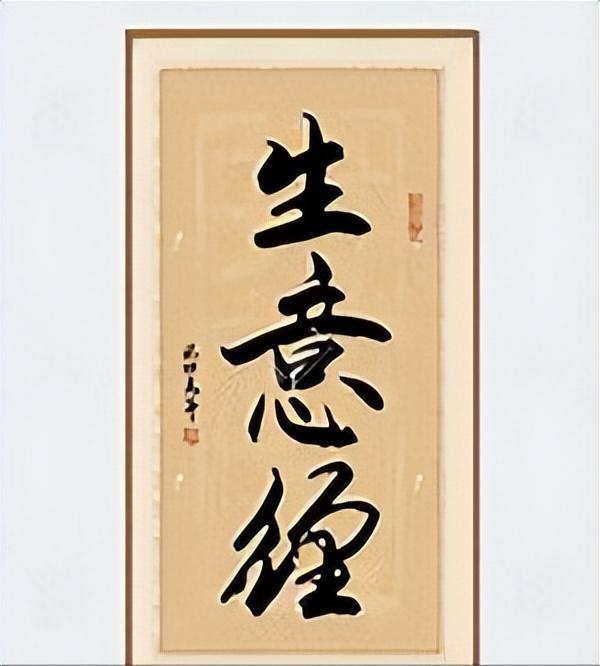 生意經